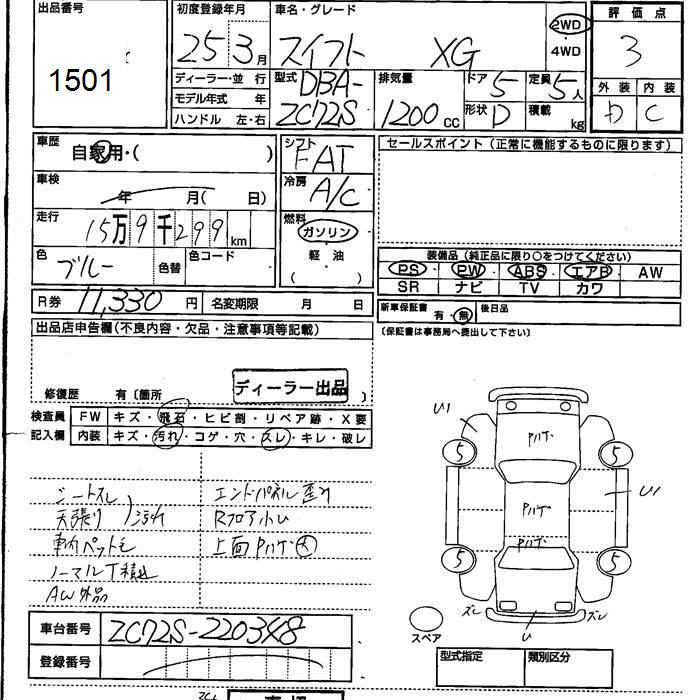 出品番号
1501
初度登録年月
25 3月
車名・グレード
スイフト XG
2WD
4WD
評価点
3
外装 内装
D C
ディーラー・並行
モデル年式 年
ハンドル 左・右
型式
DBA-
ZC72S
排気量
1200cc
ドア 5
形状 D
定員 5人
積載 kg
車歴
自家用・( )
車検
年 月( 日)
走行
15万9千299km
色
ブルー
色替
色コード
シフト
FAT
冷房
A/C
燃料
ガソリン
軽油
( )
セールスポイント(正常に機能するものに限ります)
装備品(純正品に限り○をつけてください)
PS PW ABS エアB AW
SR ナビ TV カワ
R券 11,330円
名変期限 月 日
新車保証書 有・無
後日品
〔保証書は事務局へ提出して下さい〕
出品店申告欄(不良内容・欠品・注意事項等記載)
修復歴 有〔箇所 〕
ディーラー出品
検査員
記入欄
FW キズ・飛石・ヒビ割・リペア跡・X要
内装 キズ・汚れ・コゲ・穴・スレ・キレ・破レ
シートスレ
天張り 汚れ
車内ペット毛
ノーマルT積込
AW外品
エンドパネル歪み
Rフロア小U
上面Pハゲ大
U1
Pハゲ
5
5
Pハゲ
U1
Pハゲ
5
5
ズレ
U
ズレ
スペア
車台番号 ZC72S-220348
登録番号
型式指定
類別区分